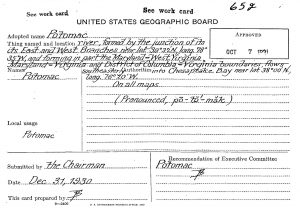 See work card
See work card
652
UNITED STATES GEOGRAPHIC BOARD
Adopted name Potomac
APPROVED
Thing named and location River, formed by the junction of its
East and West Branches near lat. 38°33'N, long. 78°
35'W, and forming in part the Maryland-West Virginia,
OCT 7 1931
Maryland-Virginia and District of Columbia-Virginia boundaries, flows
southeaster into Chesapeake Bay near lat 38°00'N,
Potomac
long. 76°20'W.
On all maps
(Pronounced,
Local usage
Potomac
Submitted by the Chairman
Recommendation of Executive Committee
Potomac
Date Dec 31, 1930
This card prepared by